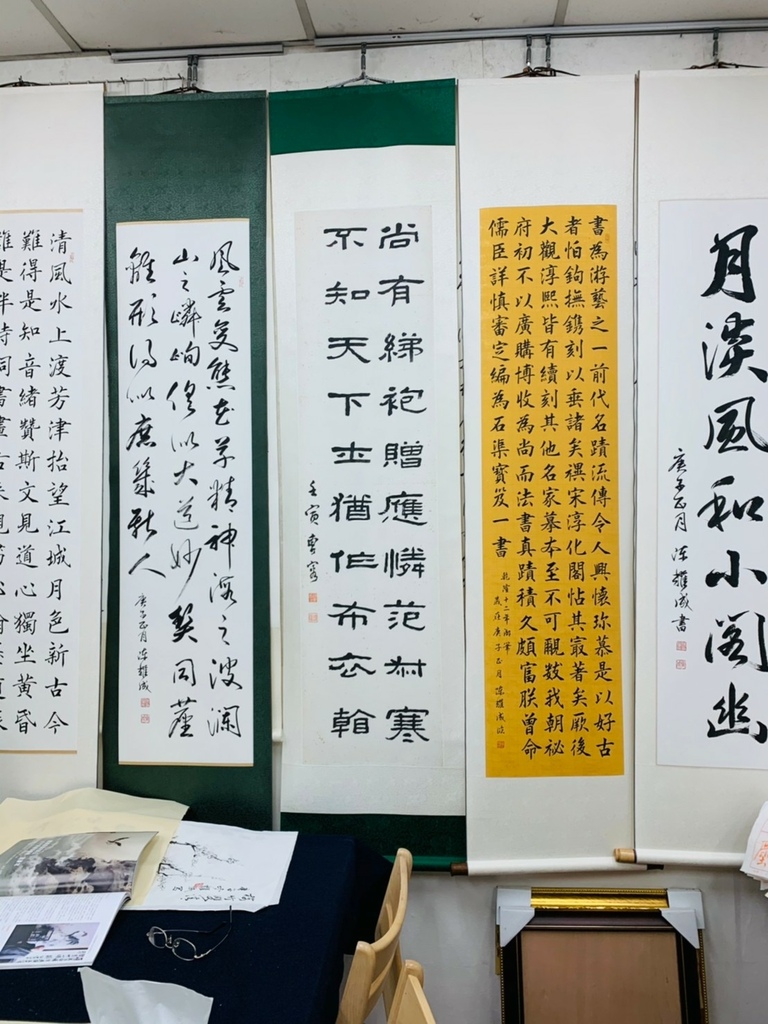 月淡風和小閣幽
庚子正月 陳耀成書
書為游藝之一前代名蹟流傳令人興懷珎慕是以好古
者怕鉤撫鐫刻以垂諸矣禩宋淳化閣帖其冣著矣厥後
大觀淳熙皆有續刻其他名家摹本至不可覼數我朝祕
府初不以廣購博收為尚而法書真蹟積久頗富朕曾命
儒臣詳慎審定編為石渠寳笈一書
乾隆十二年御筆
歲在庚子正月 陳耀成
尚有綈袍贈應憐范叔寒
不知天下士猶作布衣看
壬寅 曹容
風雲変態花草精神海之波瀾
山之嶙峋俱似大道妙契同塵
離形得似庶幾斯人
庚子正月 陳耀成
清風水上渡芳津抬望江城月色新古今
難得是知音緒贊斯文見道心獨坐黃昏